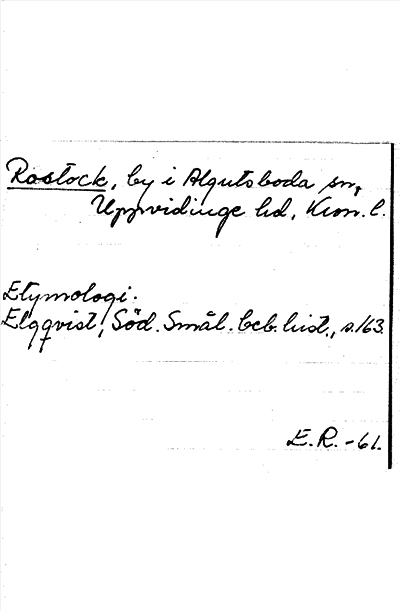 Rostock, by i Algutsboda sn,
Uppvidinge hd, Kron. l.
Etymologi.
Elqqvist, Söd. Smål. beb. hist., s. 163.
E. R. -61.